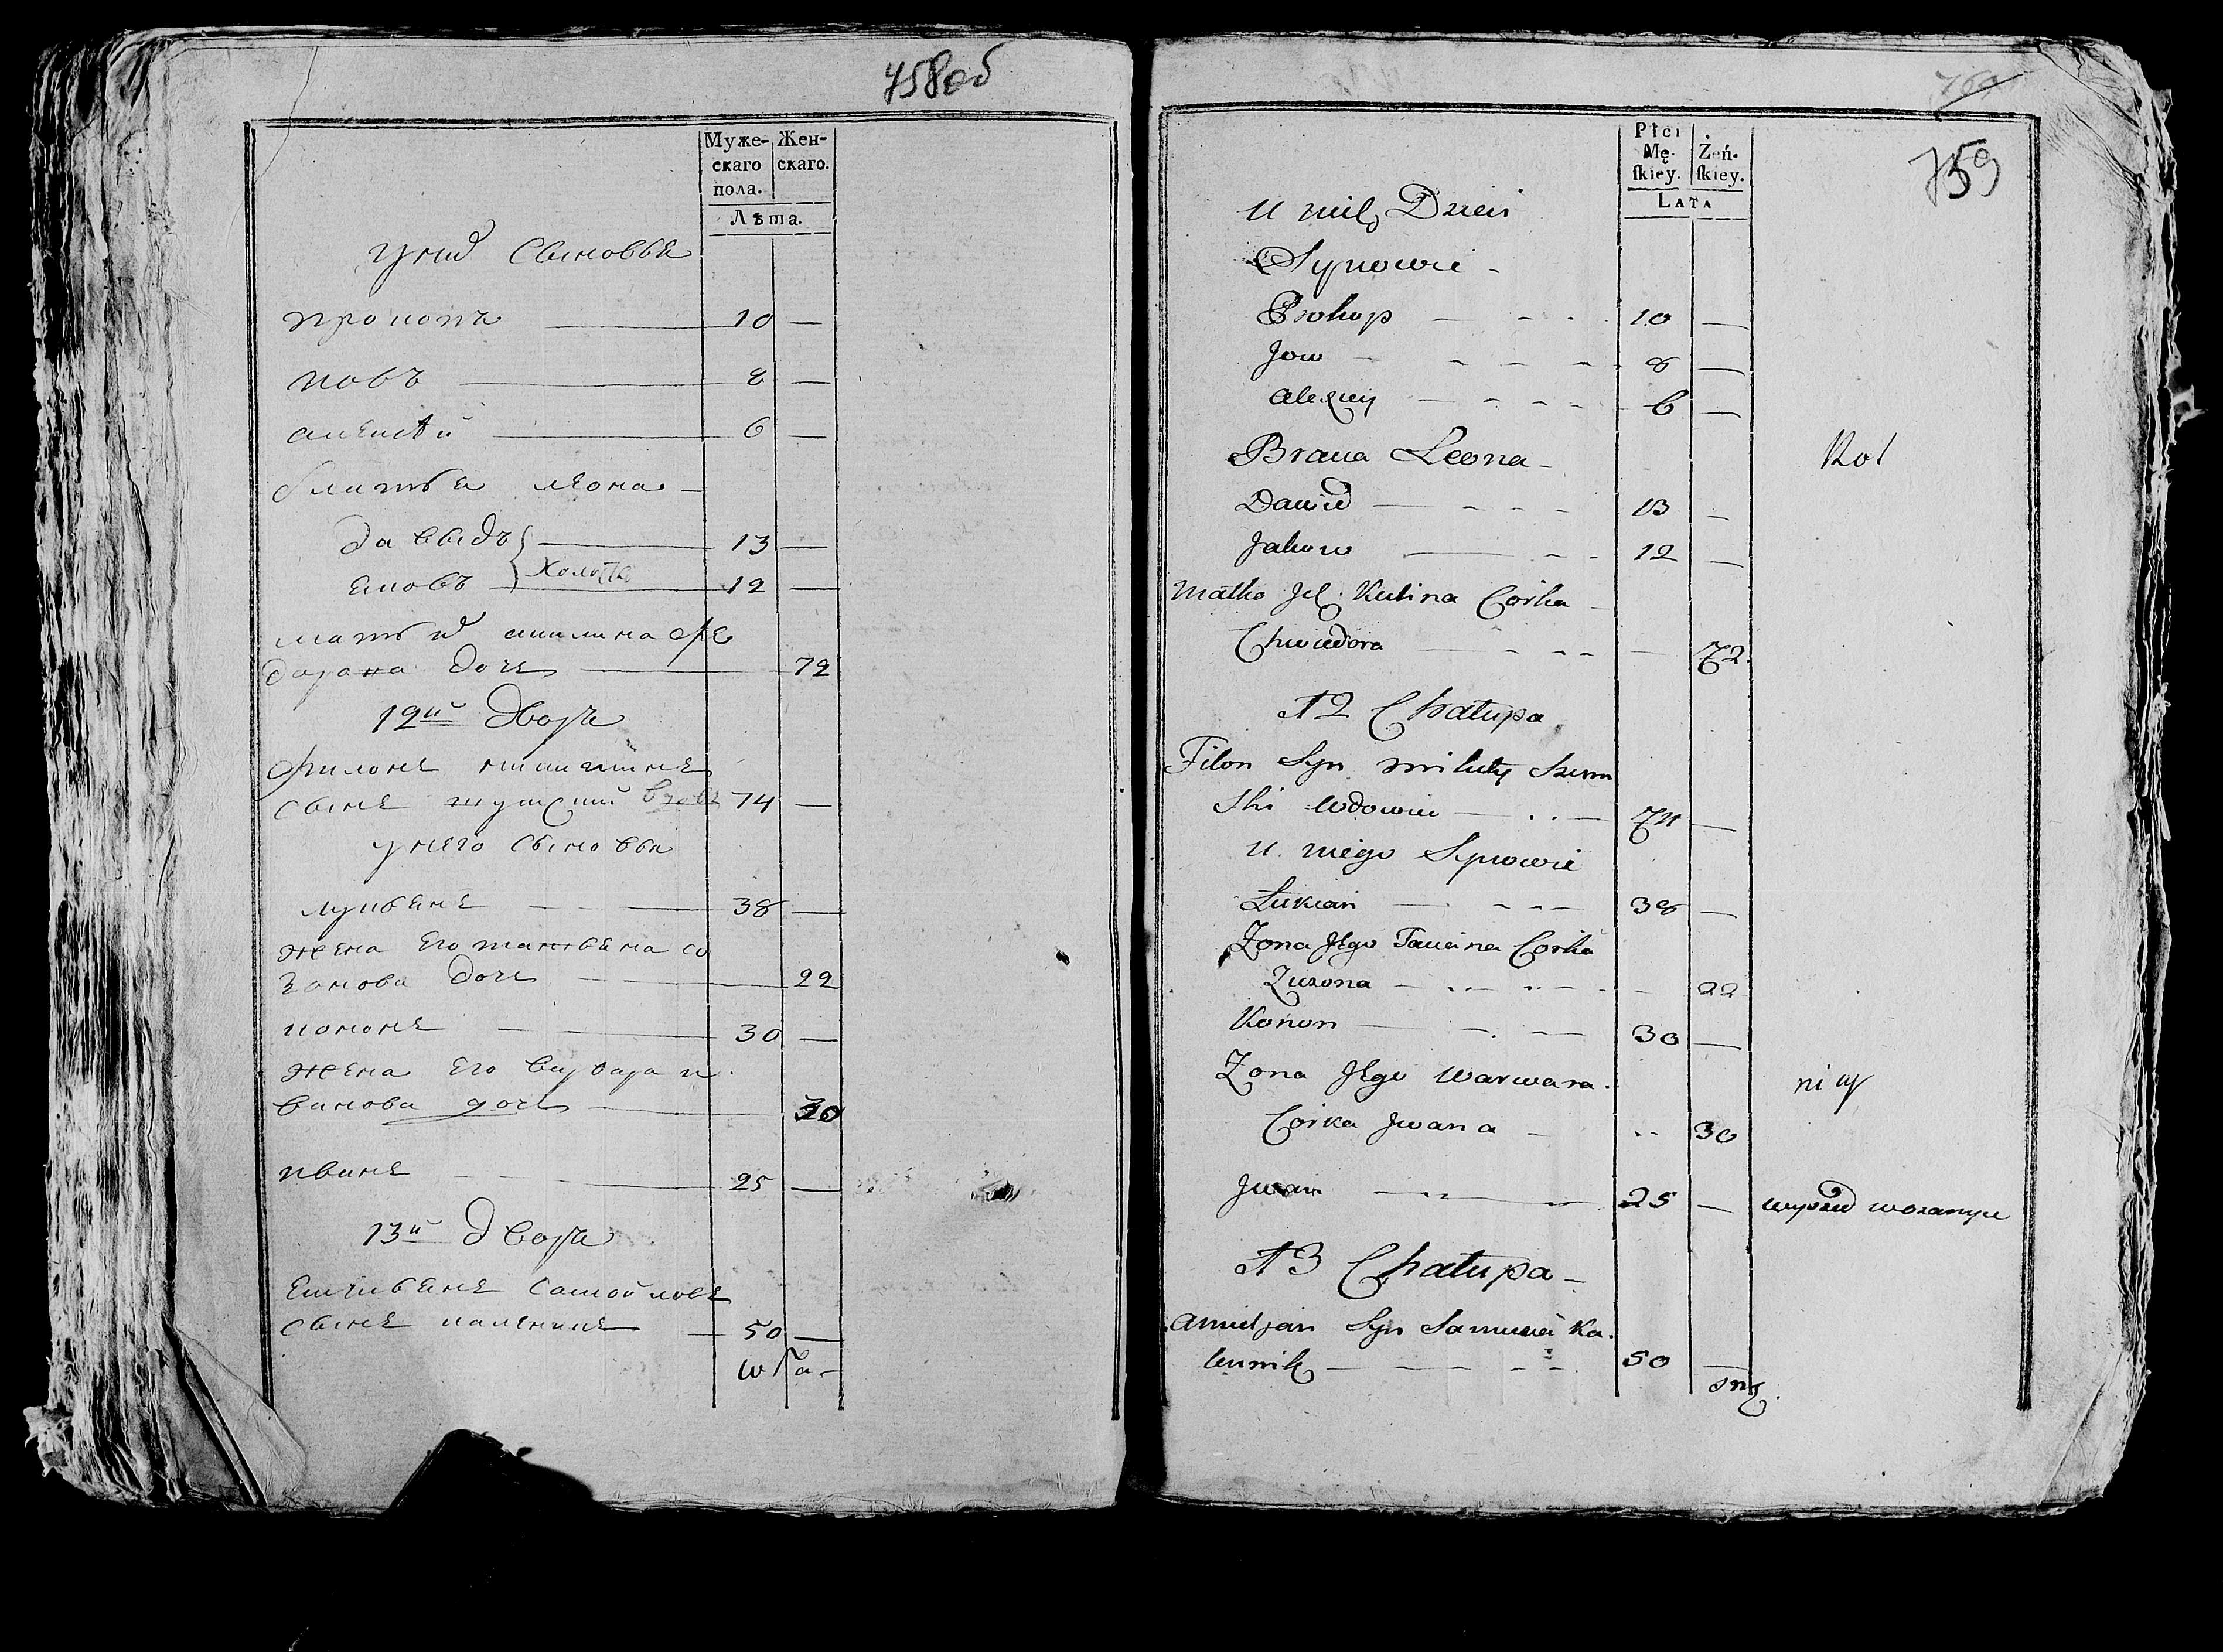 758об
Муже-
скаго
пола.
Жен-
скаго.
Лѣта.
у нид Сыновья
прокопъ 10 —
иовъ 8 —
алексѣй 6 —
братья леона —
давыдъ 13 —
яковъ холоты 12 —
мать ид акилина фе
дорона дочь 72
12й дворъ
филонъ никитинъ
сынъ 74 —
у него сыновья
лукьянъ 38 —
жена его татьяна со
зонова дочь 22
кононъ 30 —
жена его варвара и
ванова дочь 30
иванъ 25 —
13й дворъ
емильянъ самойловъ
сынъ каленикъ — 50 —
759
Płci
Mę-
skiey.
Żeń-
skiey.
LATA
U nich Dzieci
Synowie -
Prokop 10 —
Jow 8 —
Alexiey 6 —
Bracia Leona -
Dawid 13 —
Jakow 12 —
Matka Jch Kulina Corka
Chwiedora — 72
12 Chałupa
Filon Syn Mikity Szum
ski Wdowiec 74 —
U niego Synowie
Łukian 38 —
Zona Jego Taciana Corka
Zuzona — 22
Konon 30 —
Zona Jego Warwara
Corka Jwana 30
Jwan 25 —
13 Chałupa -
Amiljan Syn Samuela Ka-
lennik 50 —